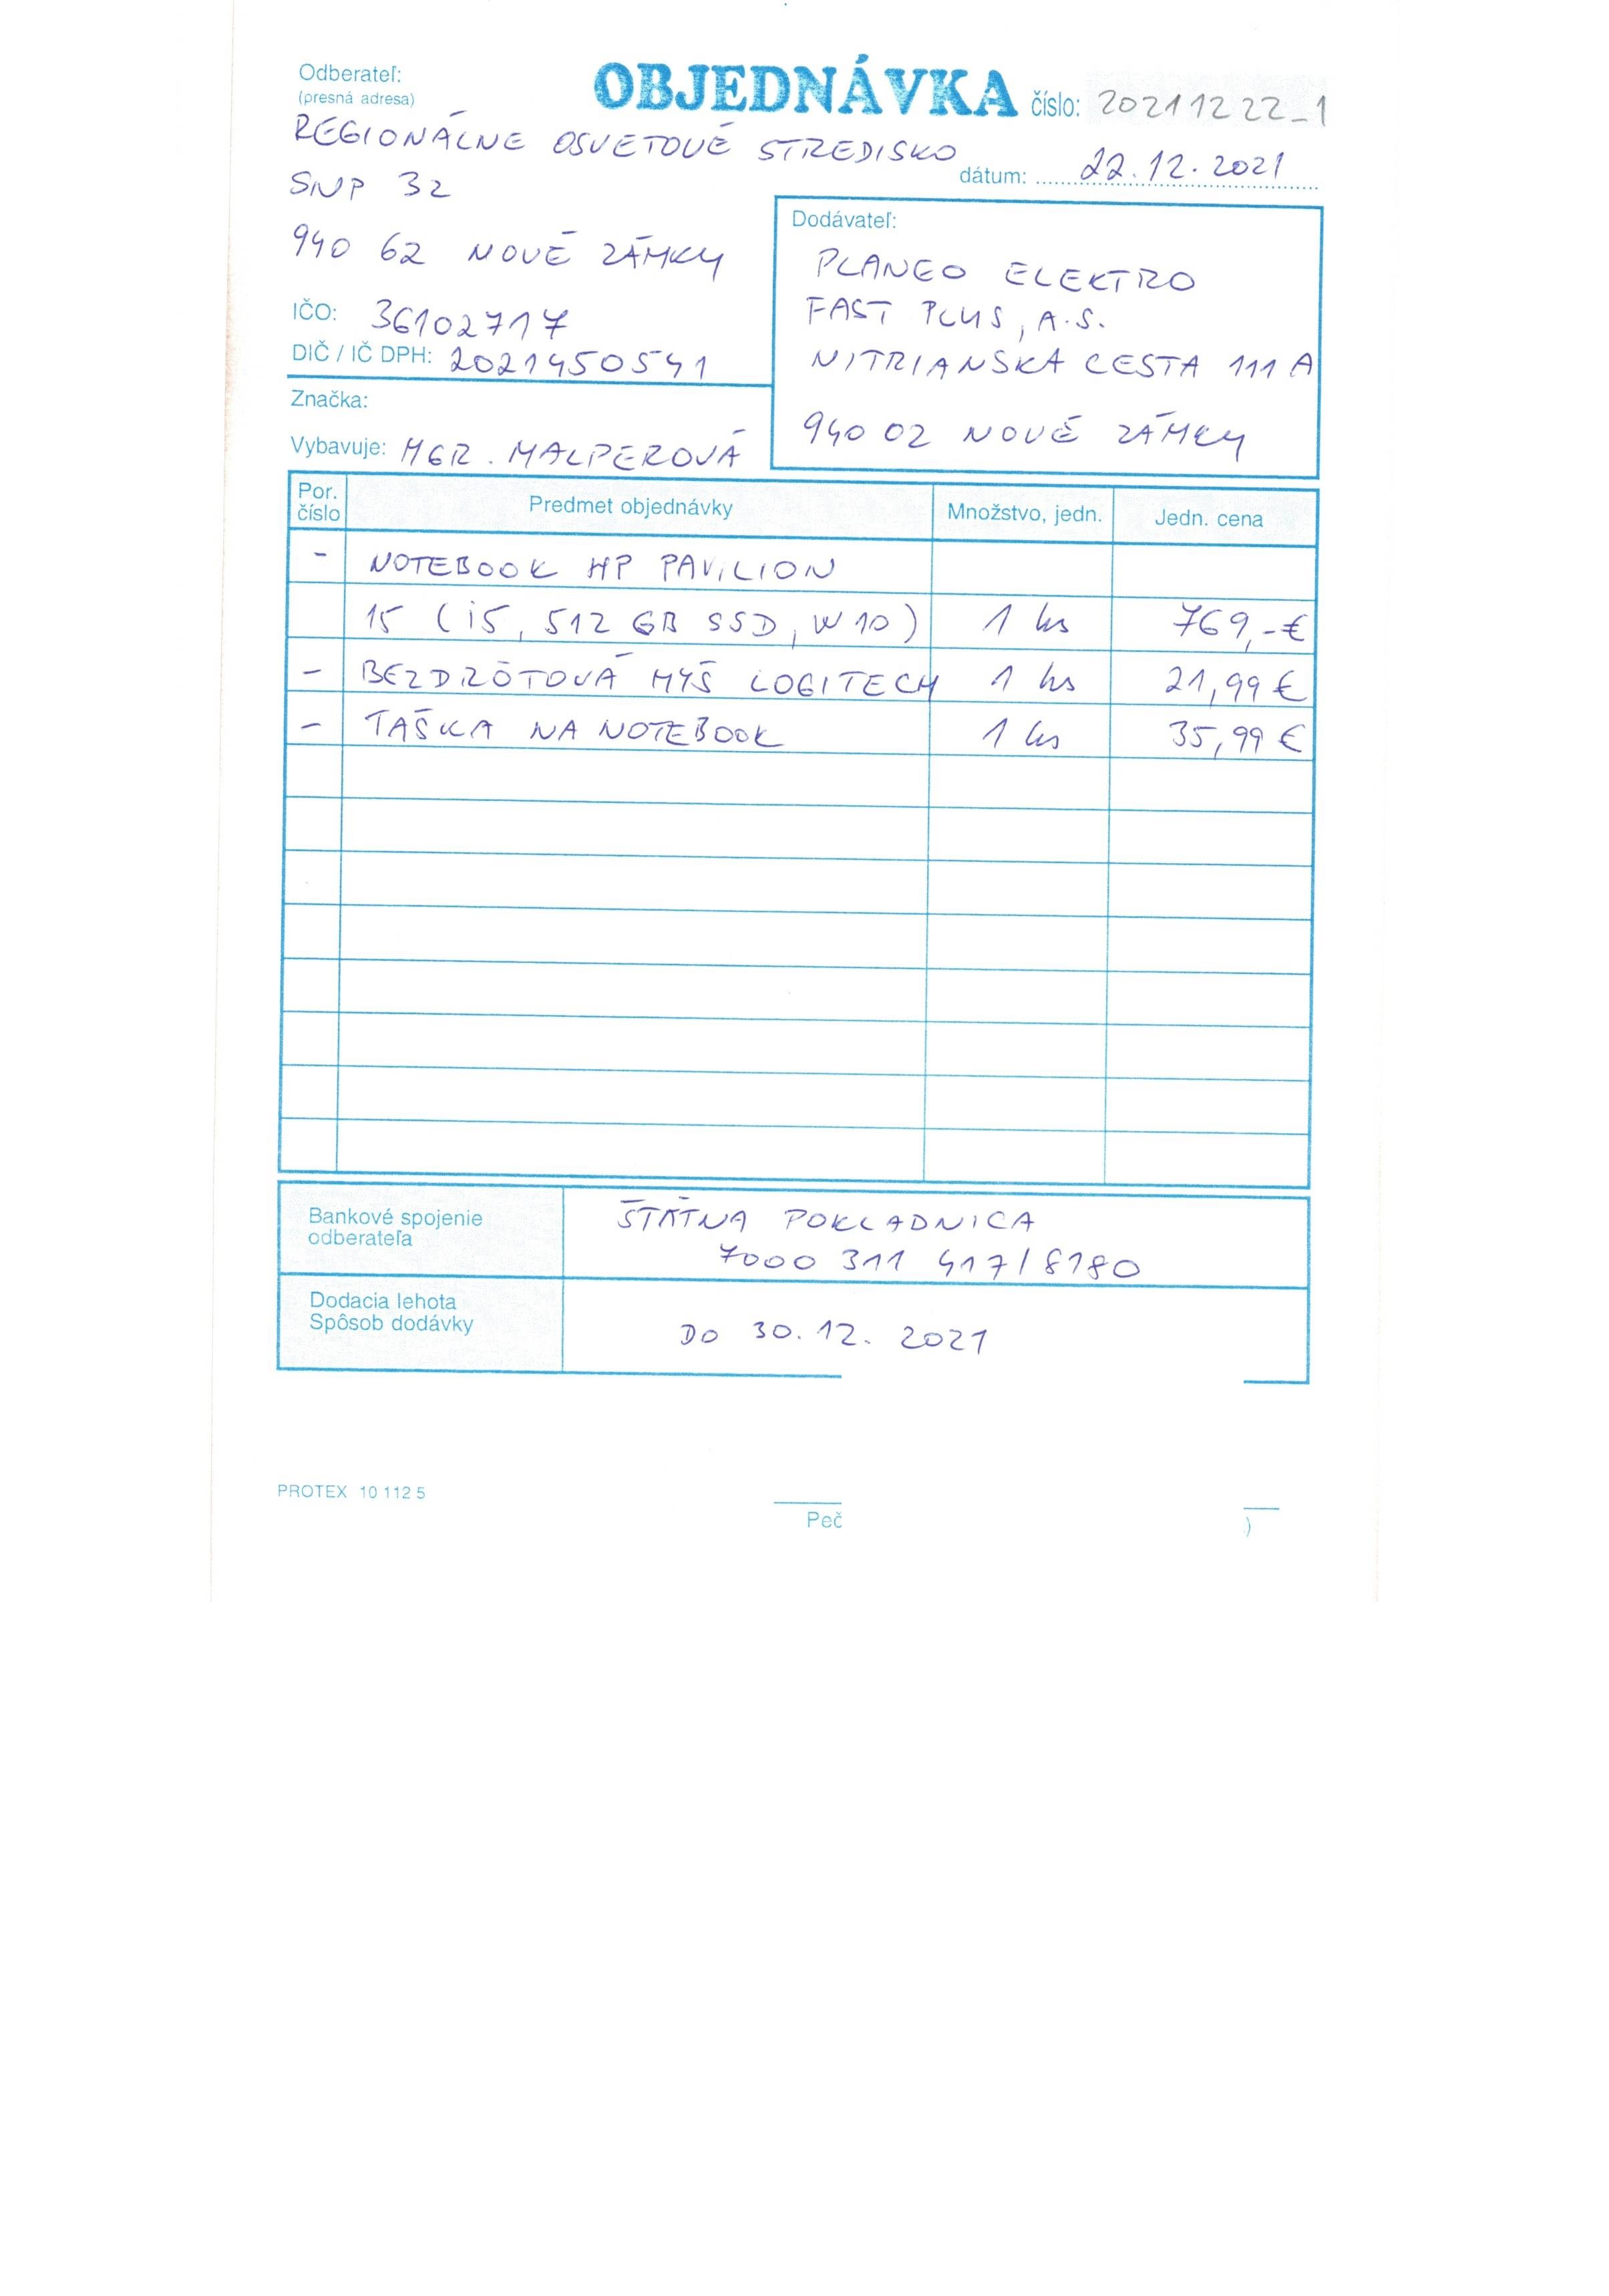 Odberateľ:
(presná adresa)
OBJEDNÁVKA číslo: 20211222_1
REGIONÁLNE OSVETOVÉ STREDISKO
dátum: 22.12.2021
SNP 32
940 62 NOVÉ ZÁMKY
IČO: 36102717
DIČ / IČ DPH: 2021450541
Značka:
Vybavuje: MGR. MALPEROVÁ
Dodávateľ:
PLANEO ELEKTRO
FAST PLUS, A.S.
NITRIANSKA CESTA 111 A
940 02 NOVÉ ZÁMKY
Por. číslo Predmet objednávky Množstvo, jedn. Jedn. cena
- NOTEBOOK HP PAVILION
15 (i5, 512 GB SSD, W10) 1 ks 769,-€
- BEZDRÔTOVÁ MYŠ LOGITECH 1 ks 21,99 €
- TAŠKA NA NOTEBOOK 1 ks 35,99 €
Bankové spojenie
odberateľa
ŠTÁTNA POKLADNICA
7000 311 417/8180
Dodacia lehota
Spôsob dodávky
DO 30.12.2021
PROTEX 10 112 5
Peč
)